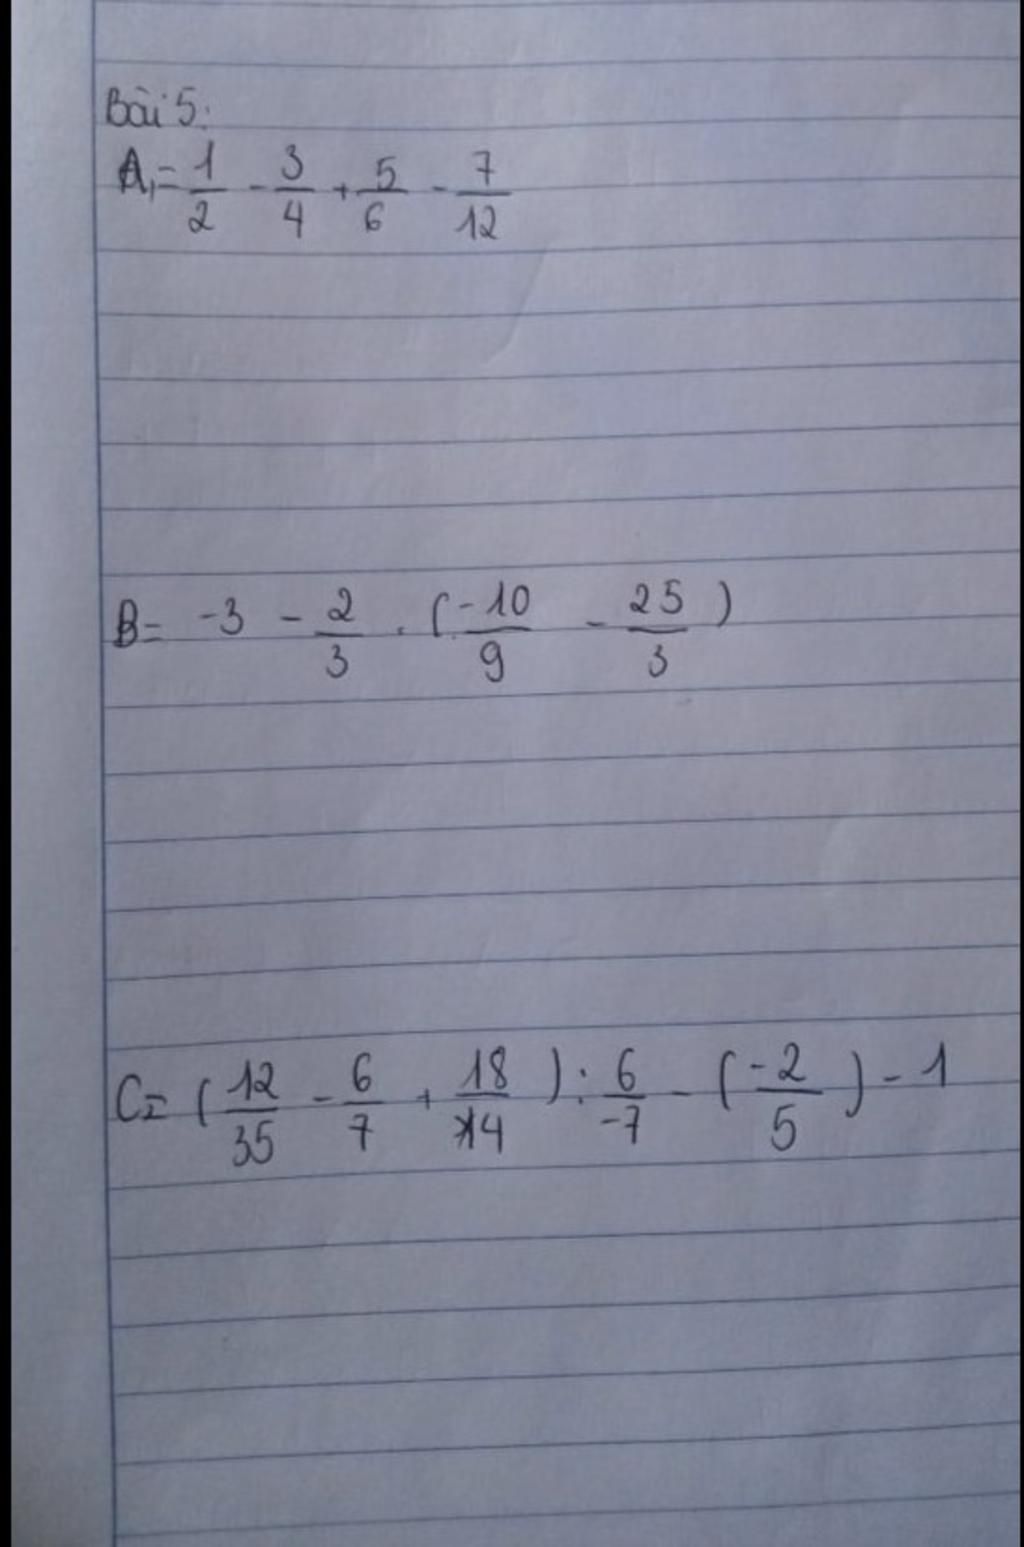 Bài 5:
A = 1/2 - 3/4 + 5/6 - 7/12
B = -3 - 2/3 . (-10/9 - 25/3)
C = (12/35 - 6/7 + 18/14) : 6/-7 - (-2/5) - 1